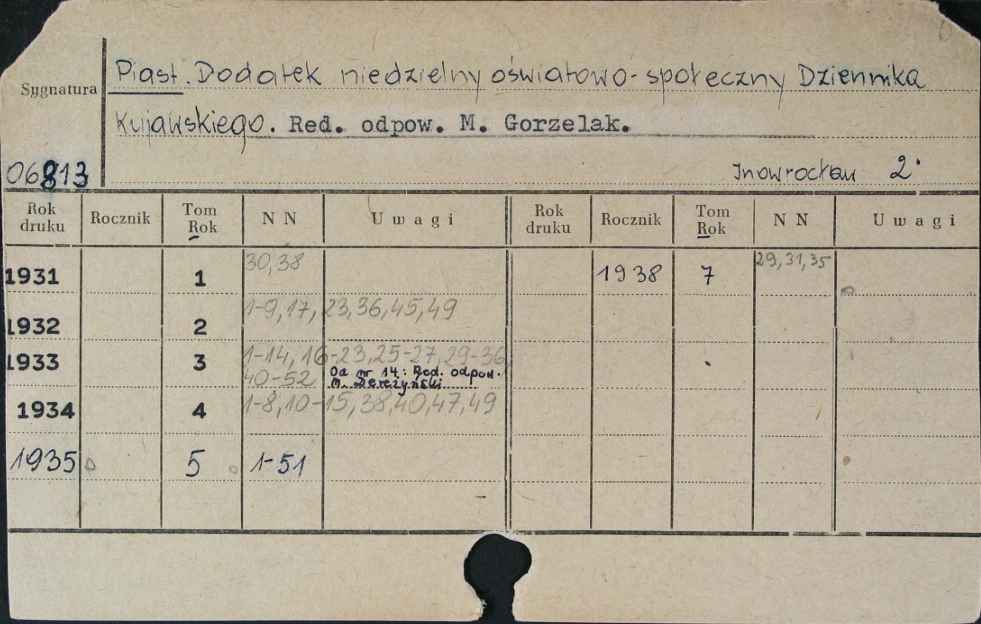 Sygnatura
Piast. Dodatek niedzielny oświatowo-społeczny Dziennika
Kujawskiego. Red. odpow. M. Gorzelak.
06813
Inowrocław 2°
Rok druku Rocznik Tom Rok NN Uwagi Rok druku Rocznik Tom Rok NN Uwagi
1931 1 30,38 1938 7 29,31,35
1932 2 1-9,17,23,36,45,49
1933 3 1-14,16-23,25-27,29-36
40-52 Od nr 14: Red. odpow.
M. Dereżyński
1934 4 1-8,10-15,38,40,47,49
1935 5 1-51